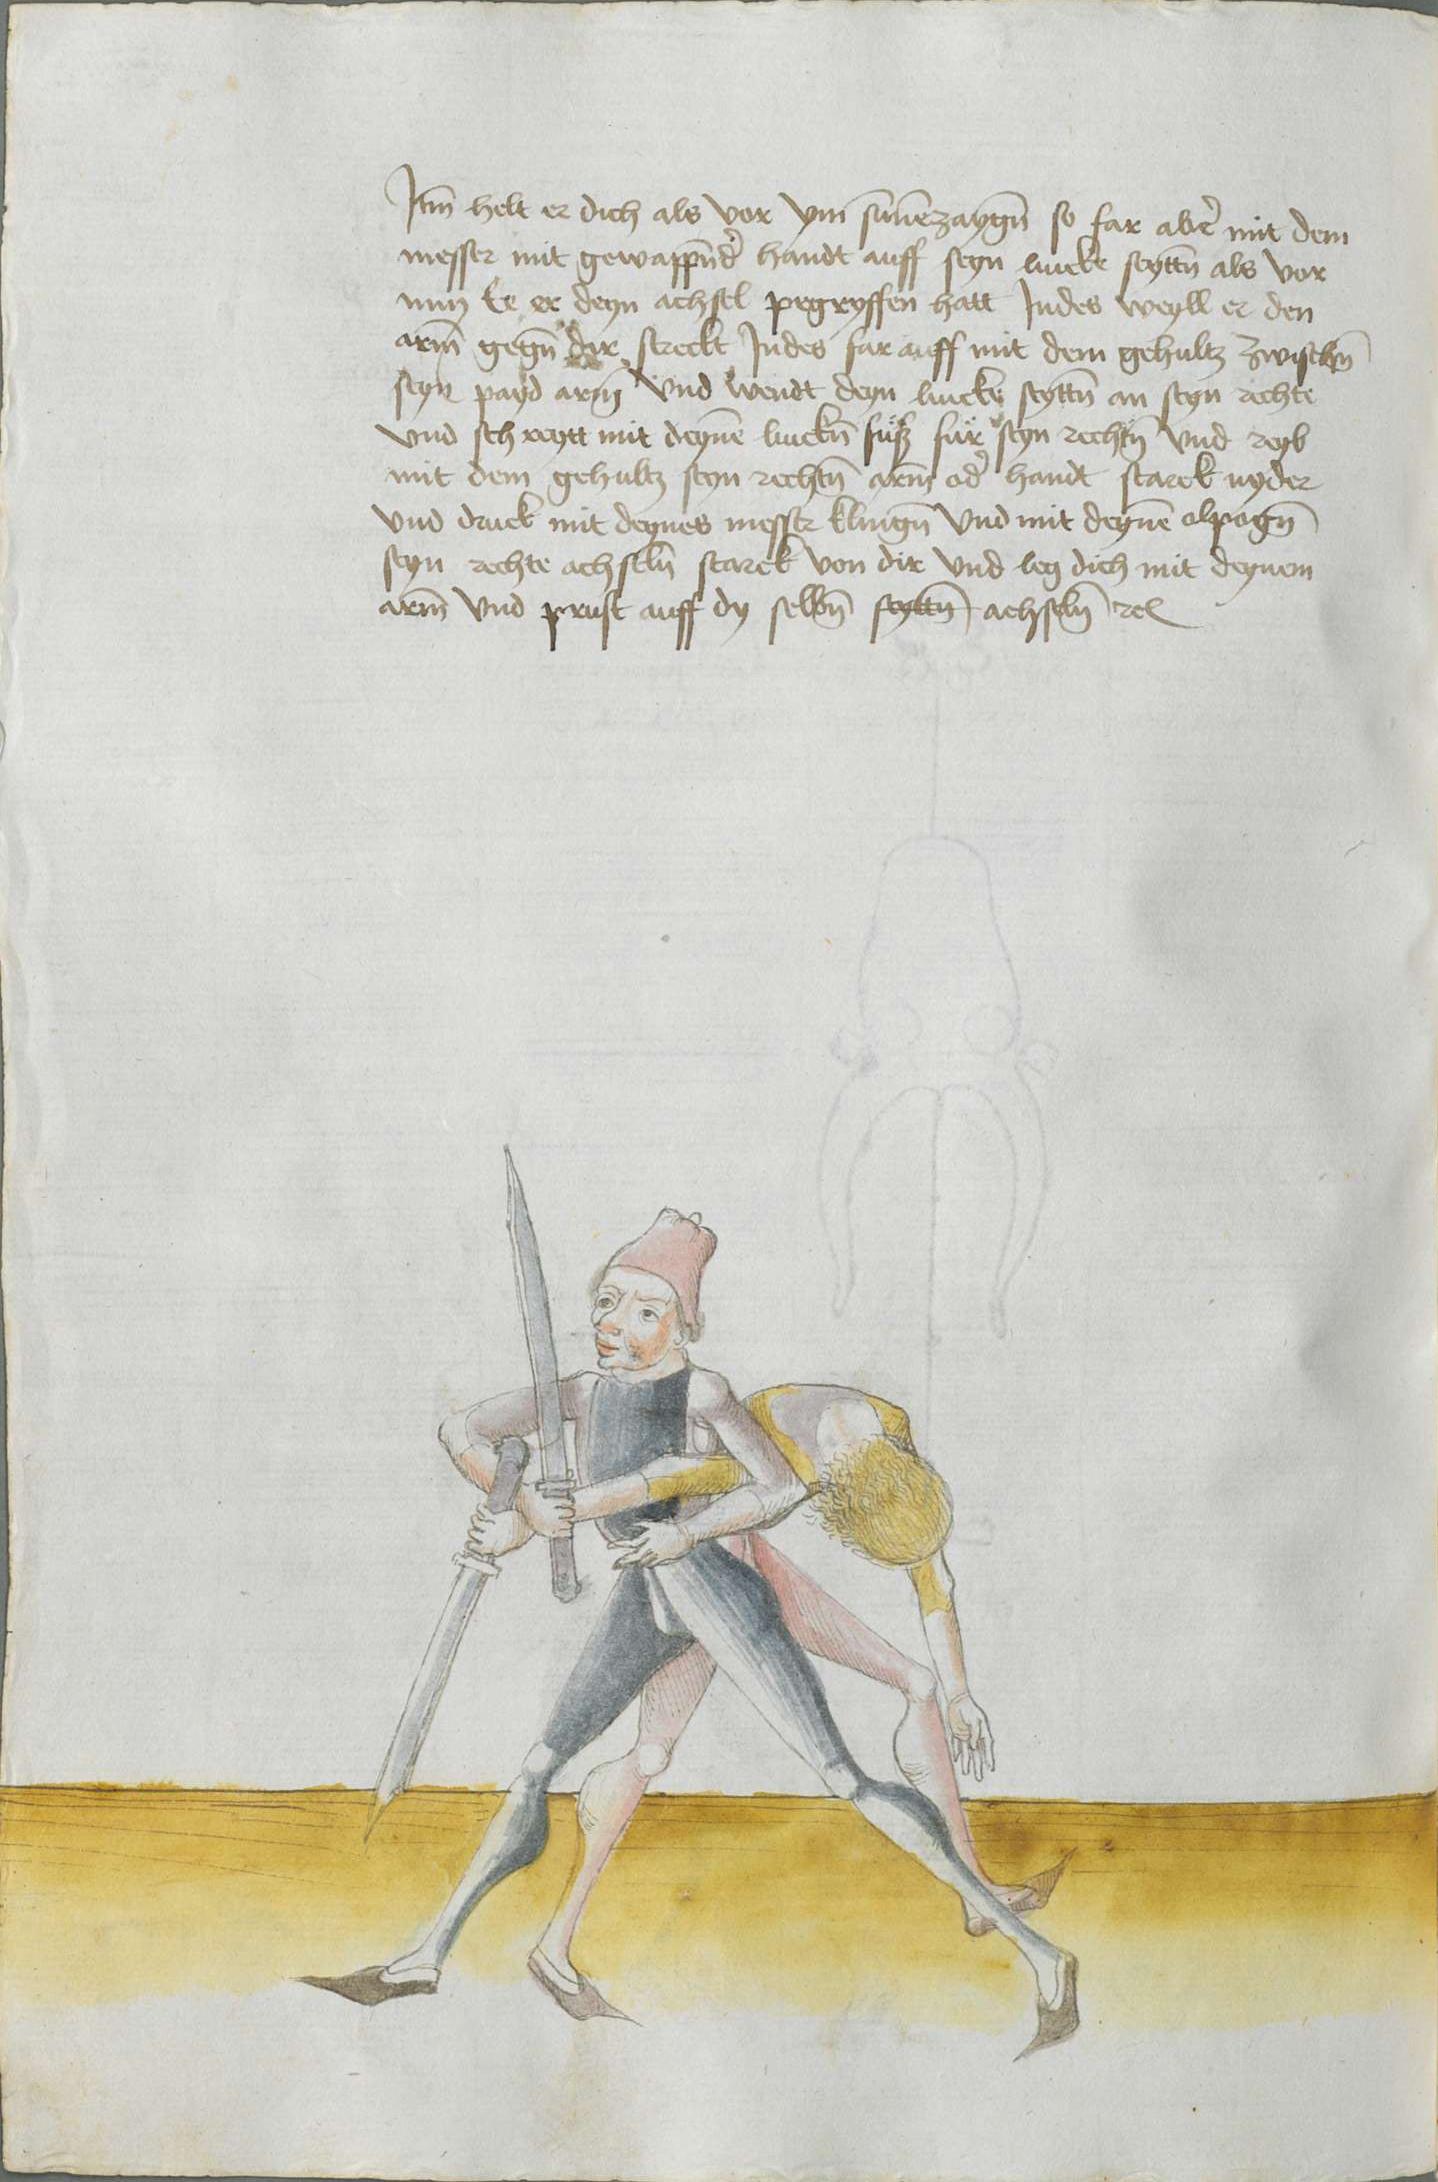 Itm̄ helt er dich als vor ym sūnēzaygn̄ so far aber̄ mit dem
messer mit gewappn̄dr̄ handt auff seyn lincke seyttn̄ als vor
nun Ee er deyn achsel pegryffen hatt Indes weyll er den
arm̄ gegn̄ dir streckt Indes far auff mit dem gehultz zwischn̄
seyn payd arm̄ Vnd wendt deyn lincke seyttn̄ an seyn rechte
vnd schreytt mit deynē linckn̄ fuß für seyn rechtn̄ Vnd reyb
mit dem gehultz seyn rechtn̄ arm̄ odr̄ handt starck nyder
vnd druck mit deynes messer klingn̄ Vnd mit deynē elpogn̄
seyn rechte achseln̄ starck von dir Vnd leg dich mit deynem
arm̄ Vnd prust auff dy selbn̄ seyttn̄ achseln̄ rc